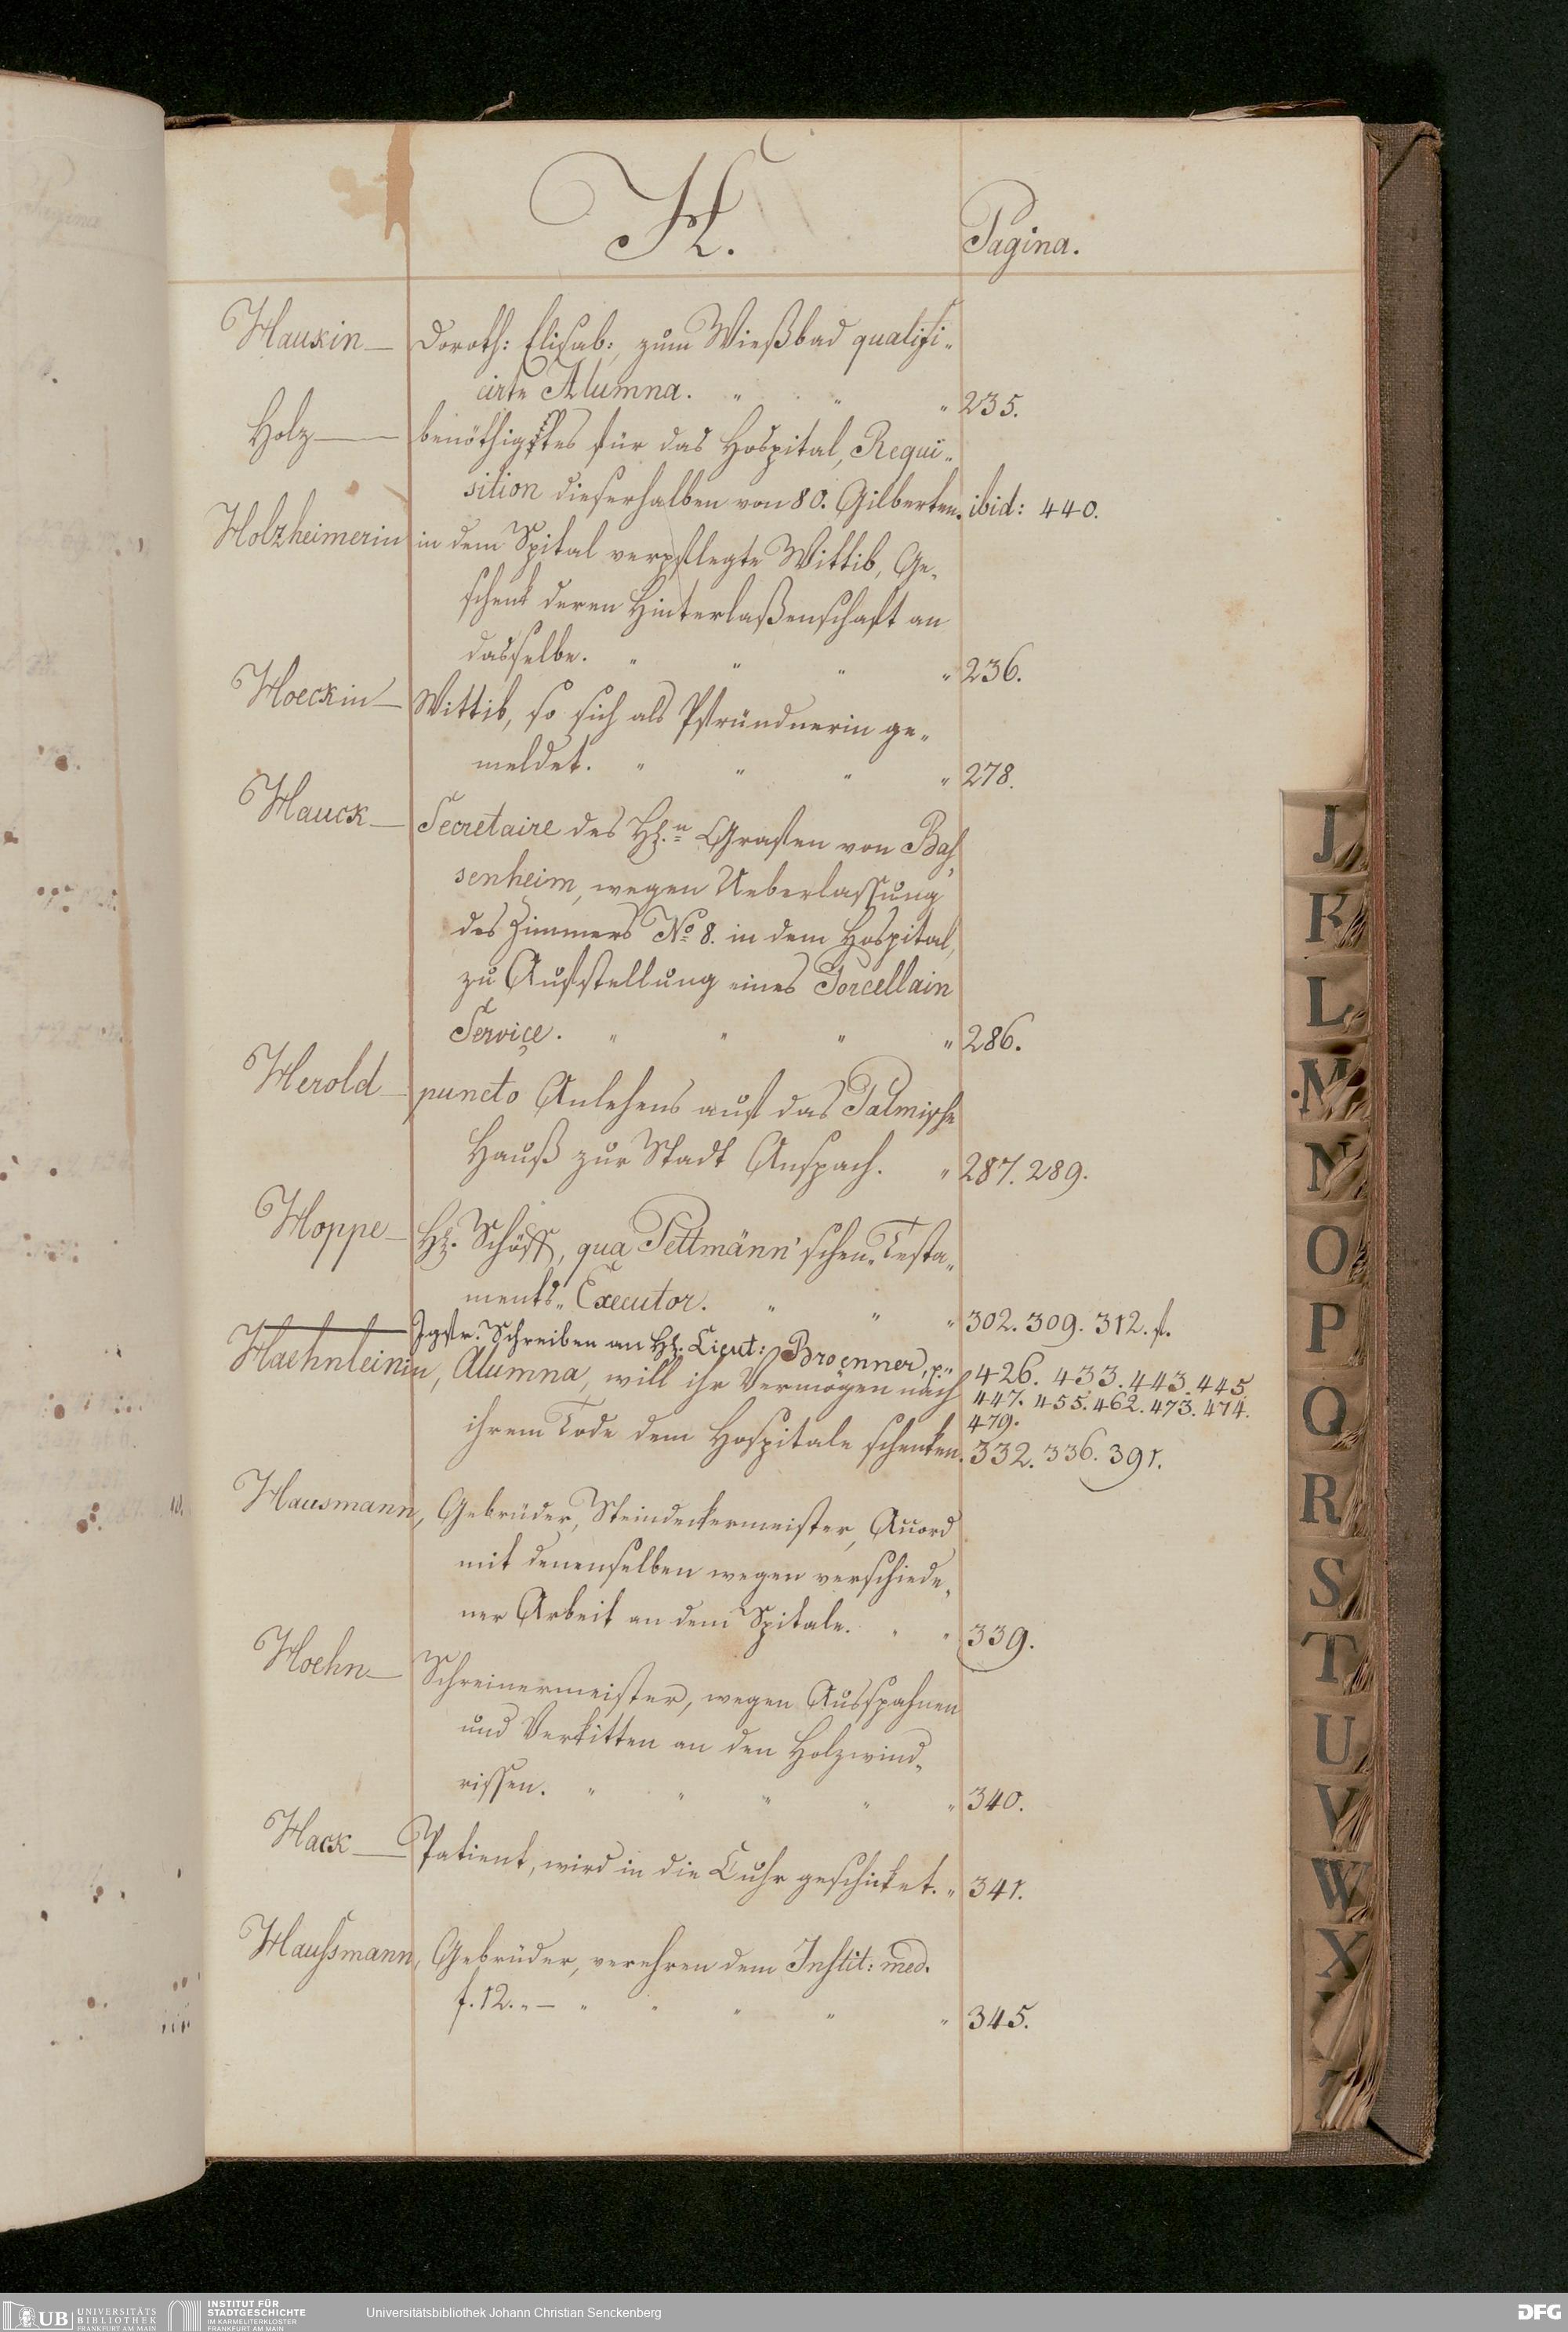 H.
Pagina.
Hauxin — Doroth: Elisab:, zum Wießbad qualifi„
cirte Alumna. „ „ „ 235.
Holz — benöthigtes für das Hospital, Requi„
sition dieserhalben von 80. Gilberten. ibid: 440.
Holzheimerin in dem Spital verpflegte Wittib, Ge„
schenk deren Hinterlaßenschaft an
dasselbe. „ „ „ „ 236.
Hoeckin — Wittib, so sich als Pfründnerin ge„
meldet. „ „ „ „ 278.
Hauck — Secretaire des H. Grafen von Bas„
senheim, wegen Ueberlassung
des Zimmers No 8. in dem Hospital,
zu Aufstellung eines Porcellain
Service. „ „ „ „ 286.
Herold — puncto Anlehens auf das Palmische
Hauß zur Stadt Anspach. „ 287. 289.
Hoppe — H. Schöff, qua Pettmänn'schen„Testa„
ments„Executor. „ „ „ 302. 309. 312. f.
— Jgfr. Schreiben an H. Lieut: Broenner, p„ 426. 433. 443. 445.
447. 455. 462. 473. 474.
479.
Haehnleinin, Alumna, will ihr Vermögen nach
ihrem Tode dem Hospitale schenken. 332. 336. 391.
Hausmann, Gebrüder, Steindeckermeister, Accord
mit denenselben wegen verschiede„
ner Arbeit an dem Spitale. „ „ 339.
Hoehn — Schreinermeister, wegen Ausspahnen
und Verkitten an den Holzwind„
rissen. „ „ „ „ „ 340.
Hack — Patient, wird in die Cuhr geschicket. „ 341.
Haussmann, Gebrüder, verehren dem Instit: med.
f. 12. „ — „ „ „ „ „ 345.
J
K
L
M
N
O
P
Q
R
S
T
U
V
W
X
UB UNIVERSITÄTS
BIBLIOTHEK
FRANKFURT AM MAIN
INSTITUT FÜR
STADTGESCHICHTE
IM KARMELITERKLOSTER
FRANKFURT AM MAIN
Universitätsbibliothek Johann Christian Senckenberg
DFG